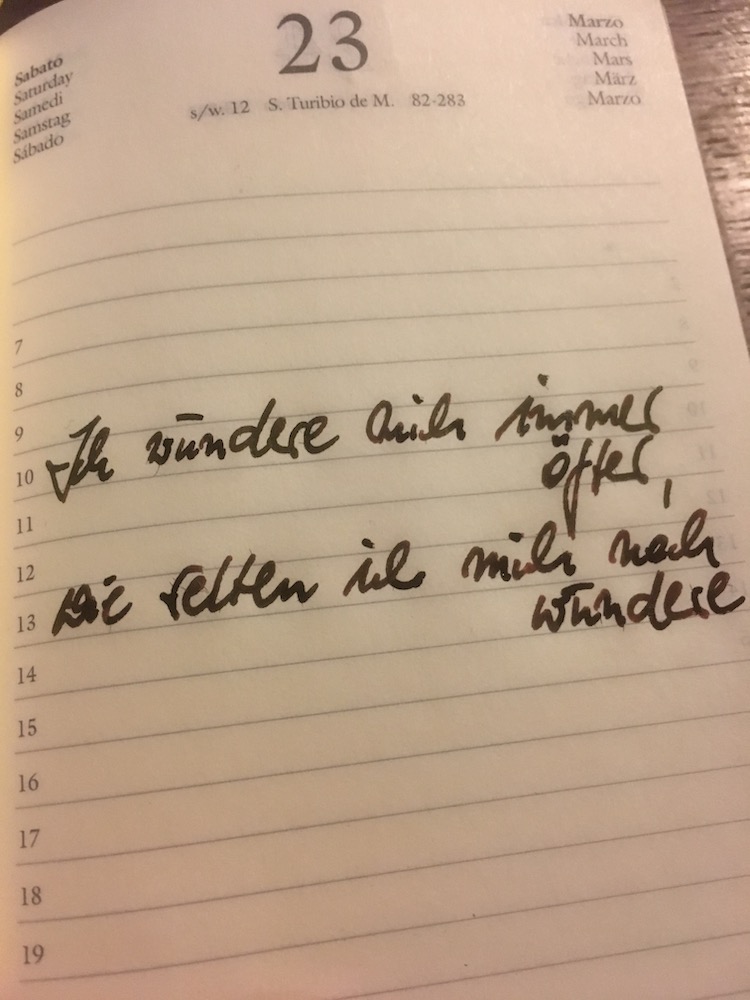 Sabato
Saturday
Samedi
Samstag
Sábado
23
s/w. 12 S. Turibio de M. 82-283
Marzo
March
Mars
März
Marzo
7
8
9
10
11
12
13
14
15
16
17
18
19
Ich wundere mich immer
öfter,
wie selten ich mich noch
wundere